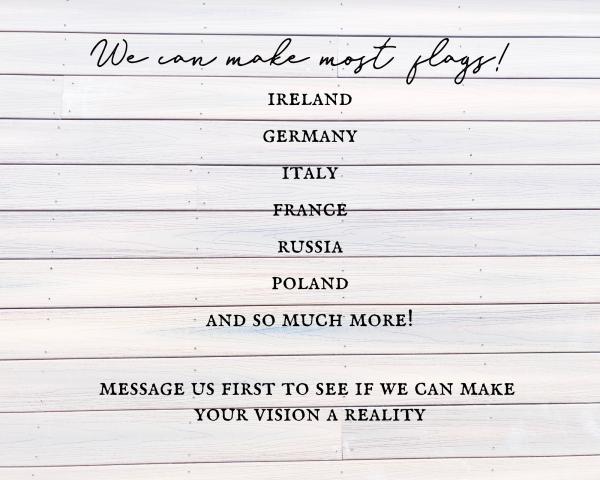 We can make most flags!
IRELAND
GERMANY
ITALY
FRANCE
RUSSIA
POLAND
AND SO MUCH MORE!
MESSAGE US FIRST TO SEE IF WE CAN MAKE
YOUR VISION A REALITY